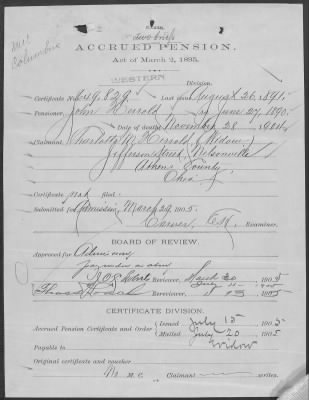 two briefs
ACCRUED PENSION.
Act of March 2, 1895.
WESTERN
Division.
Certificate No. 649,829. Last paid August 26, 1891,
Pensioner, John Herrold June 27, 1890.
Date of death November 28 1904,
Claimant Charlotte M. Herrold, (Widow)
Jefferson Street, Nelsonville
Athens County,
Ohio
Certificate not filed.
Submitted for Admission, March 29, 1905.
Carver, Examiner.
BOARD OF REVIEW.
Approved for Admission
Reviewer, March 30 1905
Rereviewer, 13 1905
CERTIFICATE DIVISION.
Accrued Pension Certificate and Order
Issued July 15 1905
Mailed July 20 1905
Payable to Widow
Original certificate and voucher
No M. C. Claimant writes.